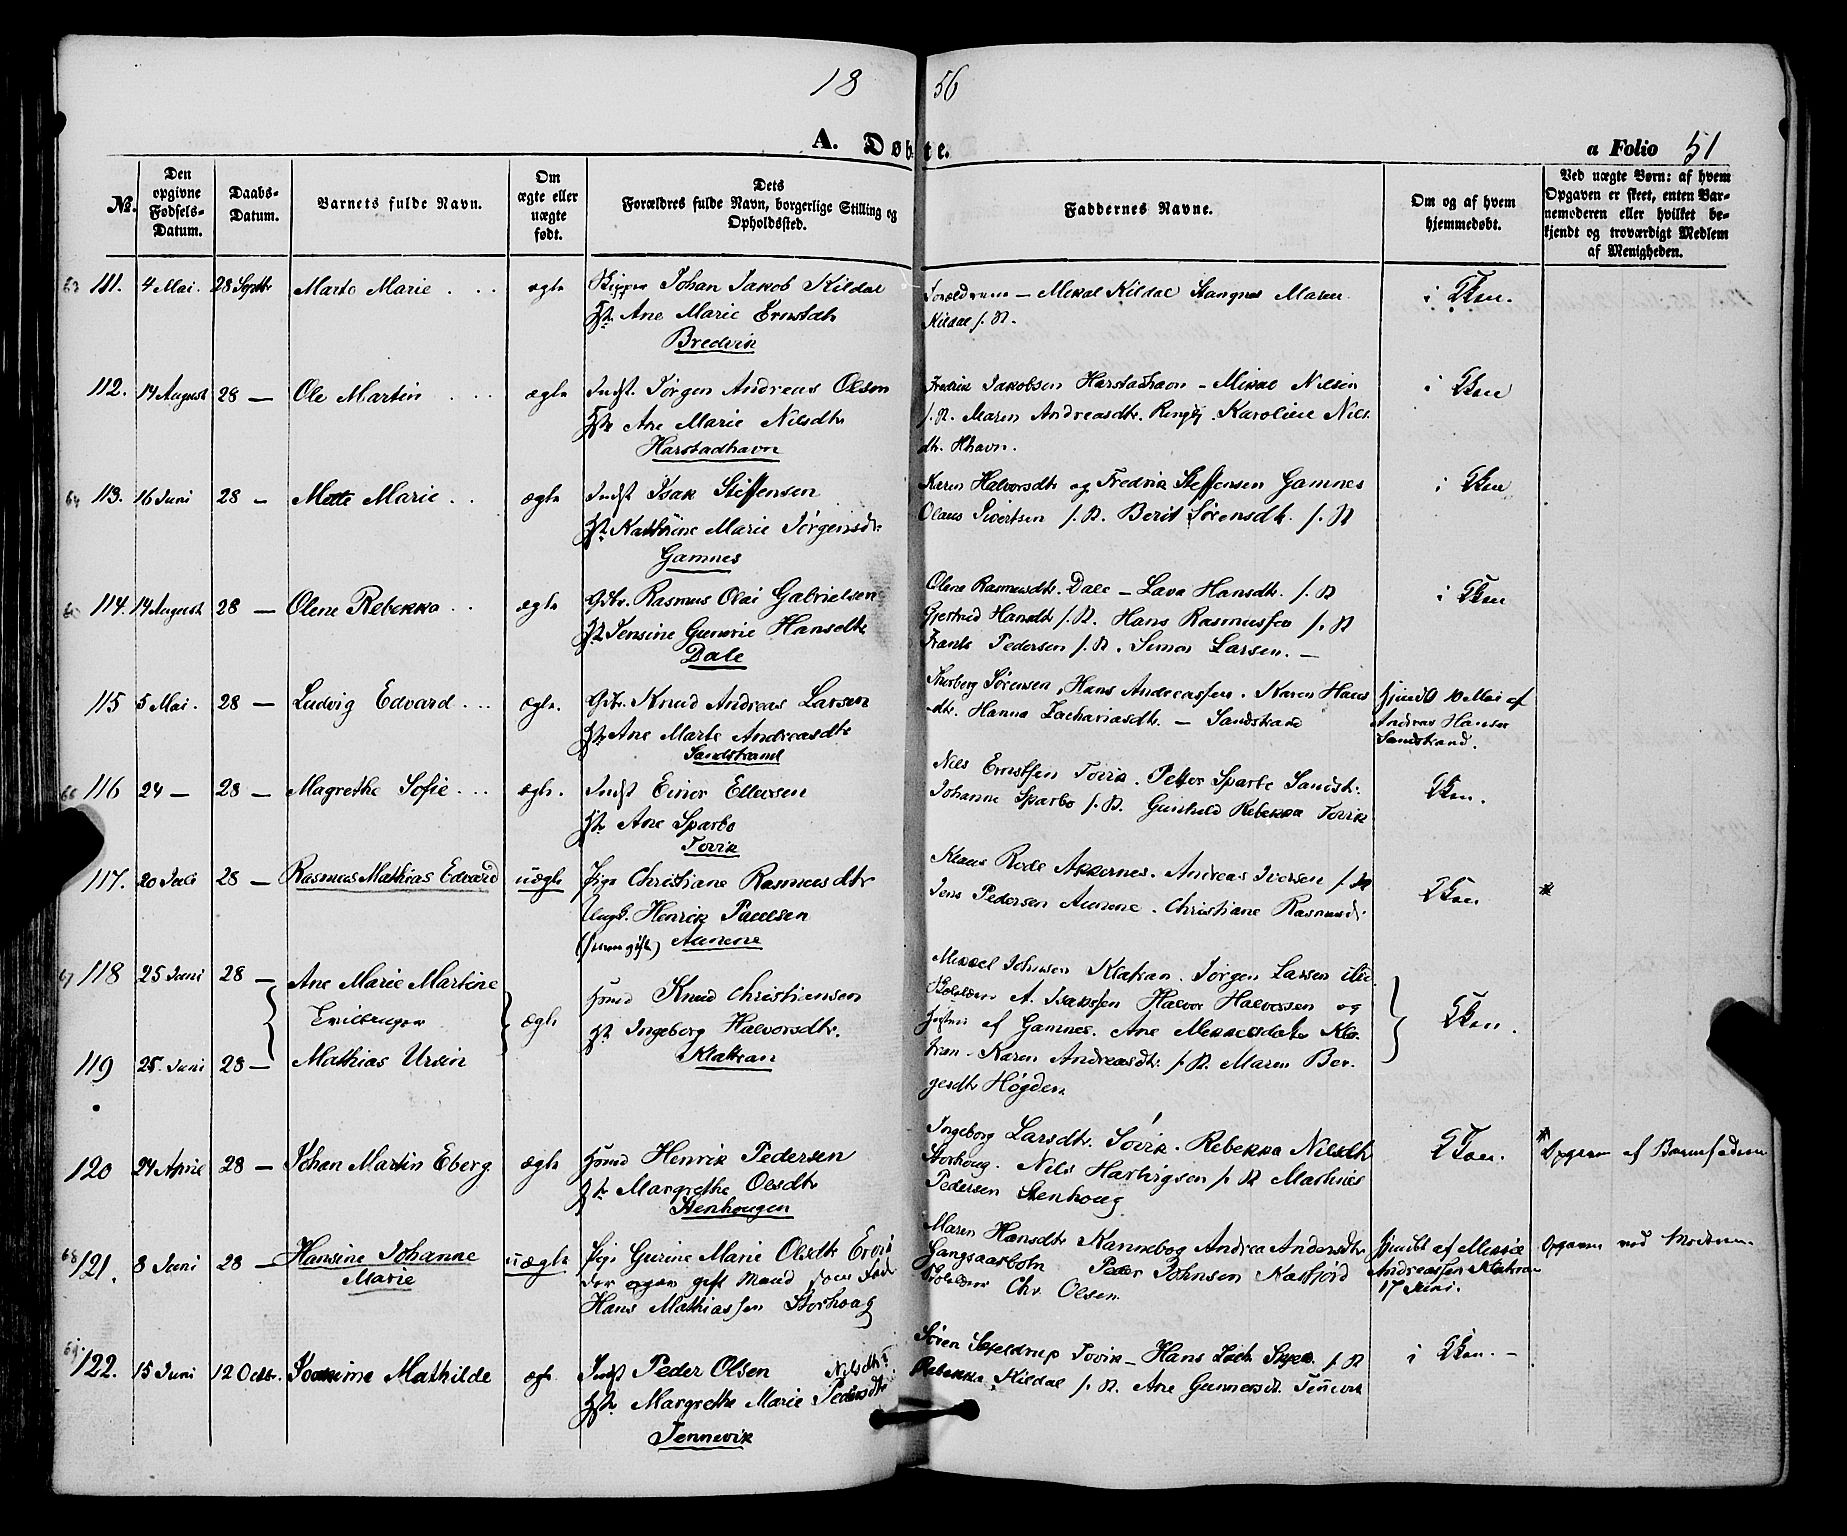 18 56
A. Døbte.
a Folio 51
No.
Den opgivne Fødsels-Datum.
Daabs-Datum.
Barnets fulde Navn.
Om ægte eller uægte født.
Dets Forældres fulde Navn, borgerlige Stilling og Opholdssted.
Faddernes Navne.
Om og af hvem hjemmedøbt.
Ved uægte Børn: af hvem Opgaven er skeet, enten Barnemoderen eller hvilket bekjendt og troværdigt Medlem af Menigheden.
63 111. 4 Mai. 28 Septbr Marte Marie ægte Skipper Johan Jakob Kildal
Ane Marie Ernstdtr
Bredvik
Forældrene – Mikal Kildal Stangnes Maren
Kildal f. St.
i Kken.
112. 14 August 28 — Ole Martin ægte Indst. Jørgen Andreas Olsen
Ane Marie Nilsdtr
Harstadhavn
Fredrik Jakobsen Harstadhavn – Mikal Nilsen
f. St. Maren Andreasdtr. Karoline Nils
dtr. Hhavn.
i Kken
64 113. 16 Juni 28 — Mette Marie ægte Indst Isak Steffensen
Kathrine Marie Jørgensdtr
Gamnes
Karen Halvorsdtr og Fredrik Steffensen Gamnes
Olaus Sivertsen f. St. Berit Sørensdtr. f. St
i Kken
65 114. 14 August 28 — Olene Rebekka ægte Gbr. Rasmus Gabrielsen
Jensine Hansdtr
Dale
Olene Rasmusdtr. Dale – Lava Hansdtr. f. St
Gjertrud Hansdtr f. St. Hans Rasmussen f. St
Frants Pedersen f. St. Simon Larsen. –
i Kken
115 5 Mai. 28 — Ludvig Edvard ægte. Gbr. Knud Andreas Larsen
Ane Marte Andreasdtr
Sandstrand
Sørensen, Hans Andreassen. Karen Hans
dtr. Hanna Zachariasdtr. – Sandstrand
Hjemdbt 10 Mai af
Andreas Hansen
Sandstrand.
66 116 24 — 28 — Magrethe Sofie ægte. Indst Einer Ellersen
Ane Sparbo
Tovik
Nils Ernstsen Tovik. Petter Sparbo Sandst.
Johanne Sparbo f. St. Gunhild Rebekka Tovik
Kken.
117. 20 Juli 28 — Rasmus Mathias Edvard uægte Pige Christiane Rasmusdtr
Ungk. Henrik Paulsen
Aunene
Klaus Rode Akkernes. Andreas Iversen f. St
Jens Pedersen Aunene. Christiane Rasmusd.
Kken
*
67 118 25 Juni 28 — Ane Marie Martine
Tvillinger
ægte
Hsmd Knud Christiansen
Ingeborg Halvorsdtr.
Klatran
119 25 Juni 28 — Mathias Ursin
Mikkel Johnsen Klatran. Jørgen Larsen
A. Isakssen Halvor Halvorsen og
af Gamnes. Ane Mikkelsdatr Kla-
tran. Karen Andreasdtr. f. St Maren Ber-
gesdtr Høgden
Kken.
120 24 April 28 — Johan Martin Eberg ægte Hsmd Henrik Pedersen
Margrethe Olsdtr
Stenhougen
Ingeborg Larsdtr. Tovik. Rebekka Nilsdtr
Storhoug. Nils Hartvigsen f. St Mathias
Pedersen Stenhoug
Kken.
* Opgaven af Barnefaderen
68 121. 8 Juni 28 — Hansine Johanne
Marie
uægte Pige Gurine Marie Olsdtr
der opgav gift Mand som Fader
Hans Mathiassen Storhoug
Maren Hansdtr Kannebog Andrea Andersdtr
Gangsaasbotn Peder Johnsen Kasfjord
Chr. Olsen.
Hjemdbt af Mikkel
Andreassen Klatran
17 Juni.
Opgaven ved Moderen
69 122. 15 Juni 12 Octbr. Mathilde ægte Indst Peder Olsen Nilsdtr?
Margrethe Marie Pedersdtr
Tennevik
Søren Skjeldrup Tovik – Hans f. St
Rebekka Kildal f. St. Ane Gunnersdtr. Tennevik
i Kken. –